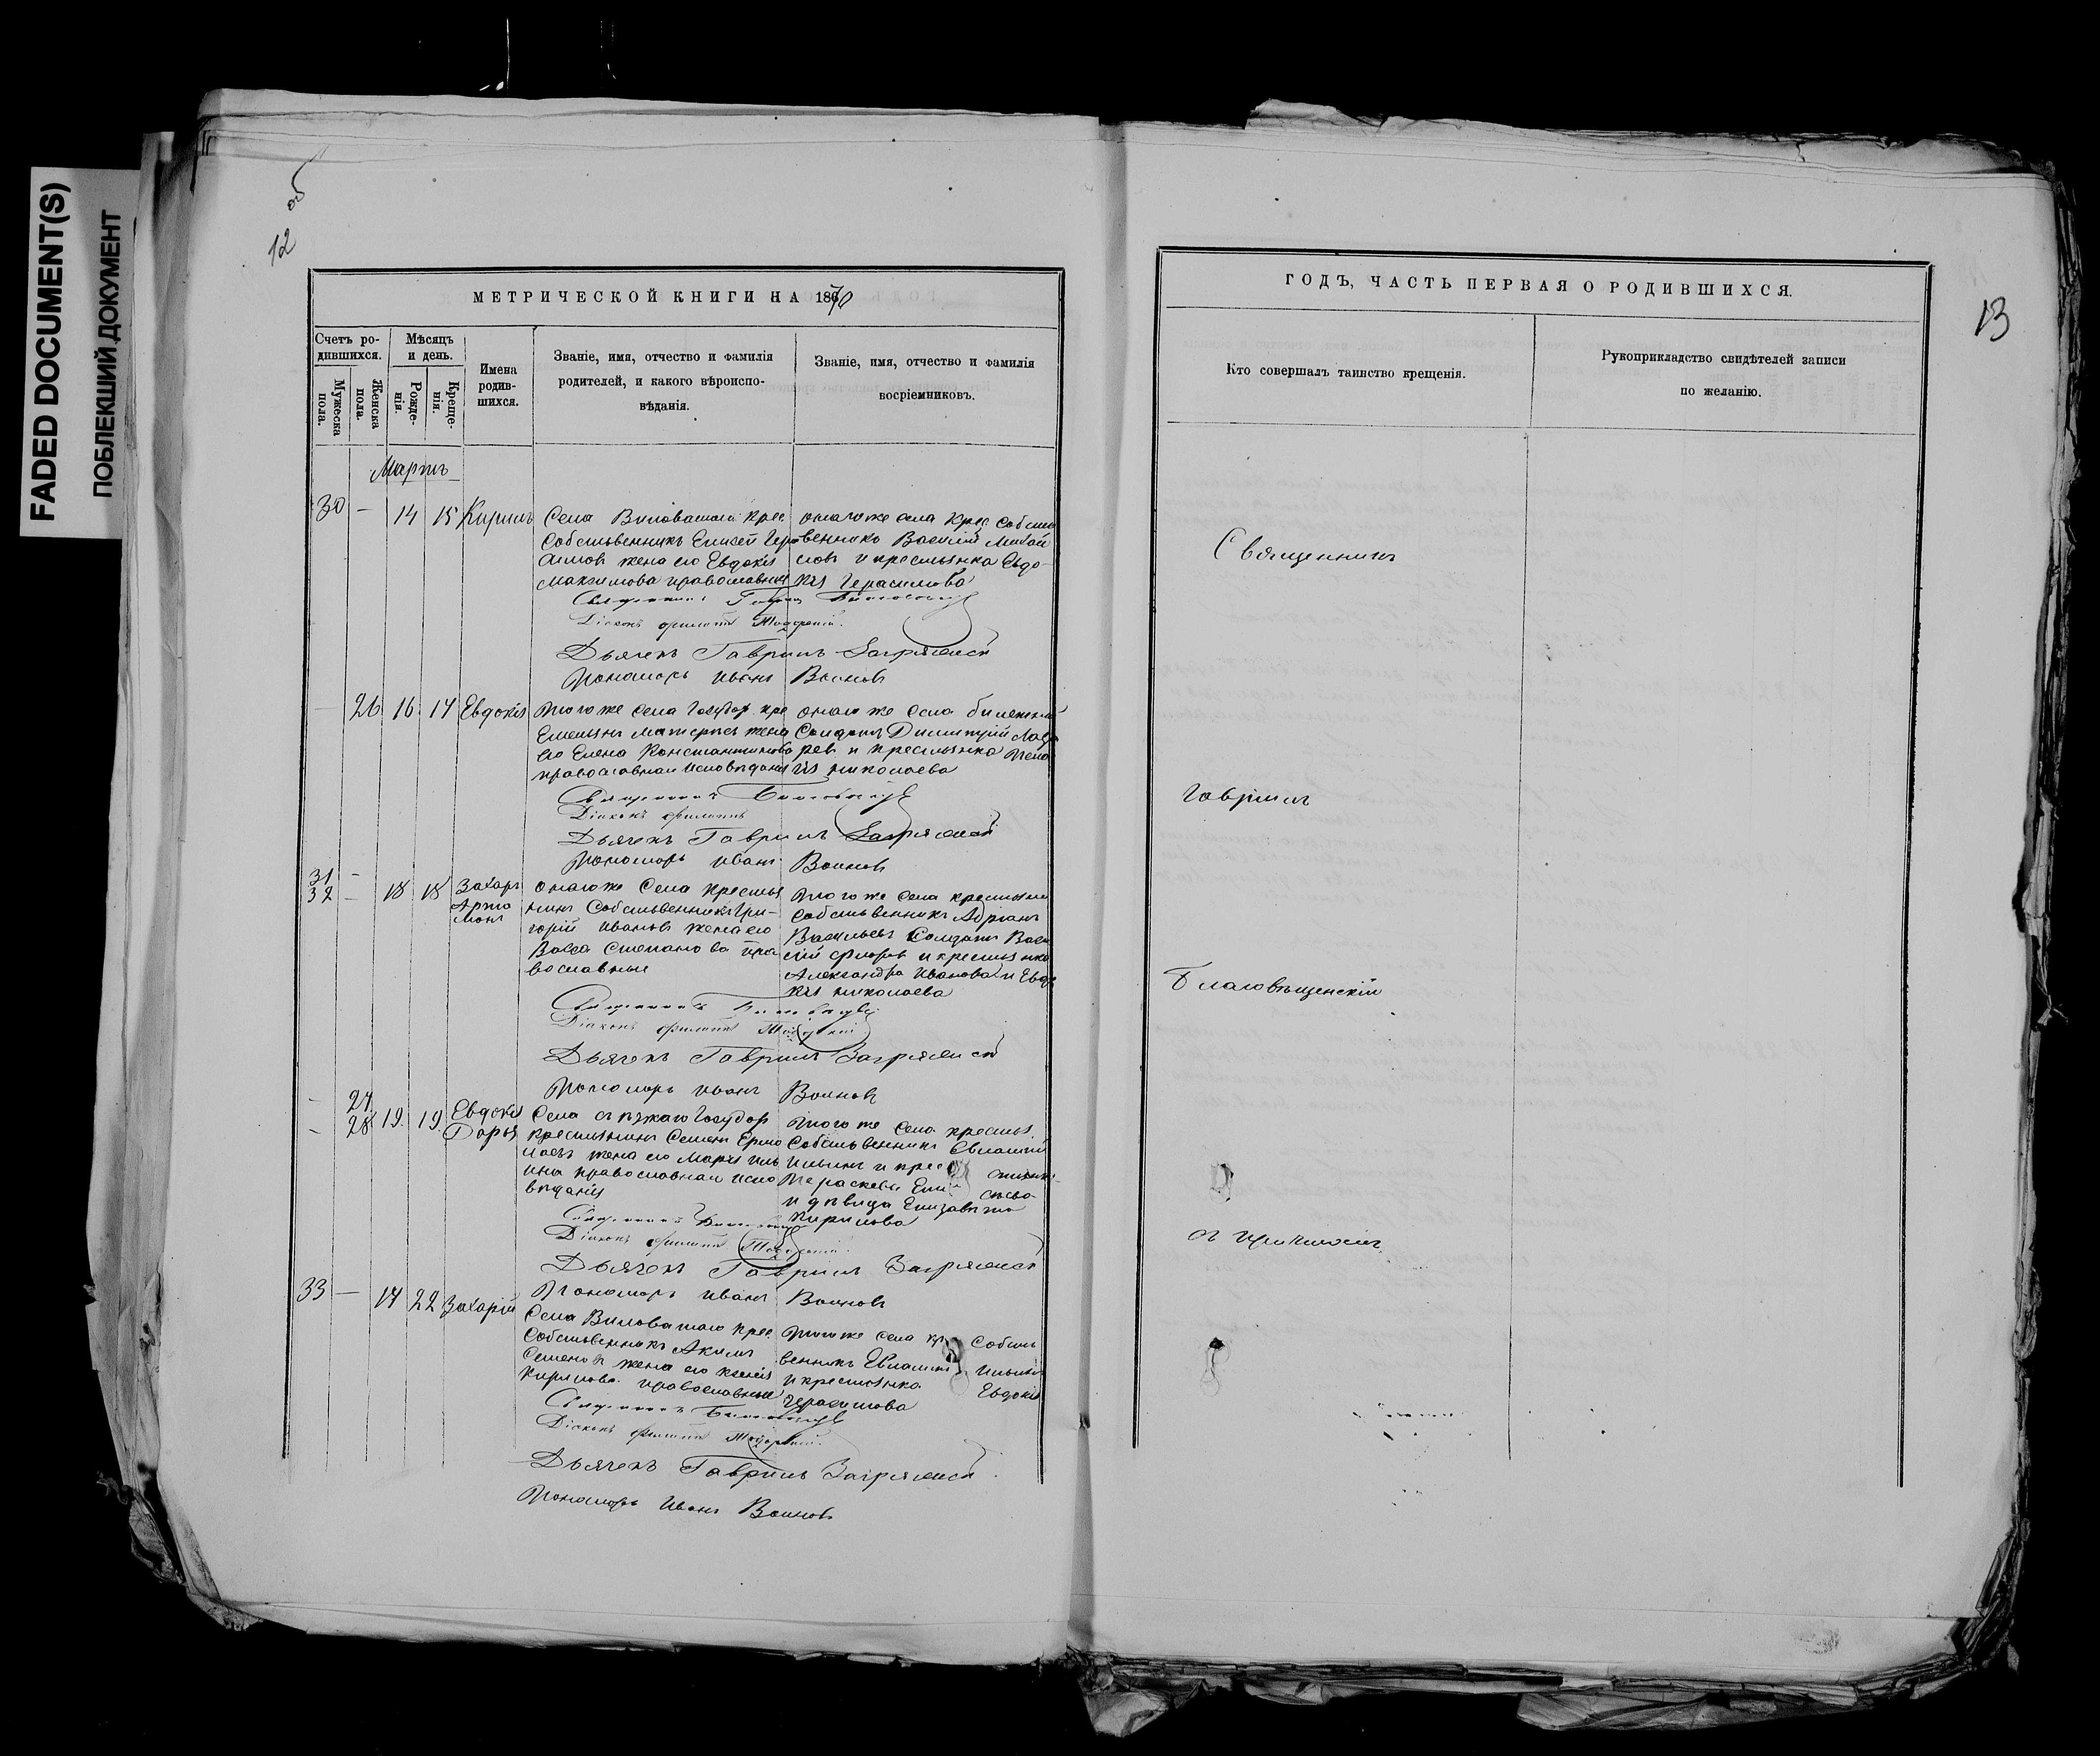 FADED DOCUMENT(S)
ПОБЛЕКШИЙ ДОКУМЕНТ
12
об
МЕТРИЧЕСКОЙ КНИГИ НА 1870
Счетъ ро-
дившихся.
Мужеска
пола.
Женска
пола.
Мѣсяцъ
и день.
Рожде-
нія.
Креще-
нія.
Имена
родив-
шихся.
Званіе, имя, отчество и фамилія
родителей, и какого вѣроиспо-
вѣданія.
Званіе, имя, отчество и фамилія
воспріемниковъ.
Мартъ
30 — 14 15 Кирилъ
Села Виловатаго крес
Собственникъ Елисей Гера
симовъ жена его Евдокія
Максимова православныя
онагоже села Крес. Собст
венникъ Василій Михай
ловъ и крестьянка Евдо
кія Герасимова
Священникъ
Діаконъ Филиппъ
Дьячекъ Гавриилъ Загрянск
Пономарь Иванъ Воиновъ
— 26 16 17 Евдокія
Тогоже села Государ. кре
Емельянъ жена
его Елена Константинова
православнаго исповѣданія
онаго же села билетный
Солдатъ Димитрій Лав
рев и крестьянка Пела
гія Николаева
Священникъ
Діаконъ Филиппъ
Дьячекъ Гавриилъ
Пономарь Иванъ Воиновъ
31 —
32 — 18 18 Захаръ
Арта
монъ
онагоже Села крестья
нинъ Собственникъ Гри-
горій Ивановъ жена его
Васса Степанова пра
вославные
Тогоже села крестьянинъ
Собственникъ Адріанъ
Васильевъ Солдатъ Васи
лій Фроловъ и крестьянка
Александра Иванова и Евдо
кія Николаева
Священникъ
Діаконъ Филиппъ
Дьячекъ Гавриилъ
Пономарь Иванъ Воиновъ
— 27
— 28 19 19 Евдокія
Дарья
Села Государ
крестьянинъ Семенъ Ермо
лаевъ жена его Марья Иль
ина православнаго испо
вѣданія
Тогоже села крестья.
Собственникъ Евлампій
Ильинъ и крес
Параскева Ели
и дѣвица Елизавета
Кирилова
Священникъ
Діаконъ Филиппъ
Дьячекъ Гавриилъ
Пономарь Иванъ Воиновъ
33 — 17 22 Захарій
Села Виловатаго крес
Собственникъ Акимъ
Семеновъ жена его Ксенія
Кирилова православные
Тогоже села кр Собст
венникъ Евлампій Ильинъ
и крестьянка Евдокія
Герасимова
Священникъ
Діаконъ Филиппъ
Дьячекъ Гавриилъ
Пономарь Иванъ Воиновъ
13
ГОДЪ, ЧАСТЬ ПЕРВАЯ О РОДИВШИХСЯ.
Кто совершалъ таинство крещенія.
Рукоприкладство свидѣтелей записи
по желанію.
Священникъ
Гавріилъ
Благовѣщенскій
съ причтомъ